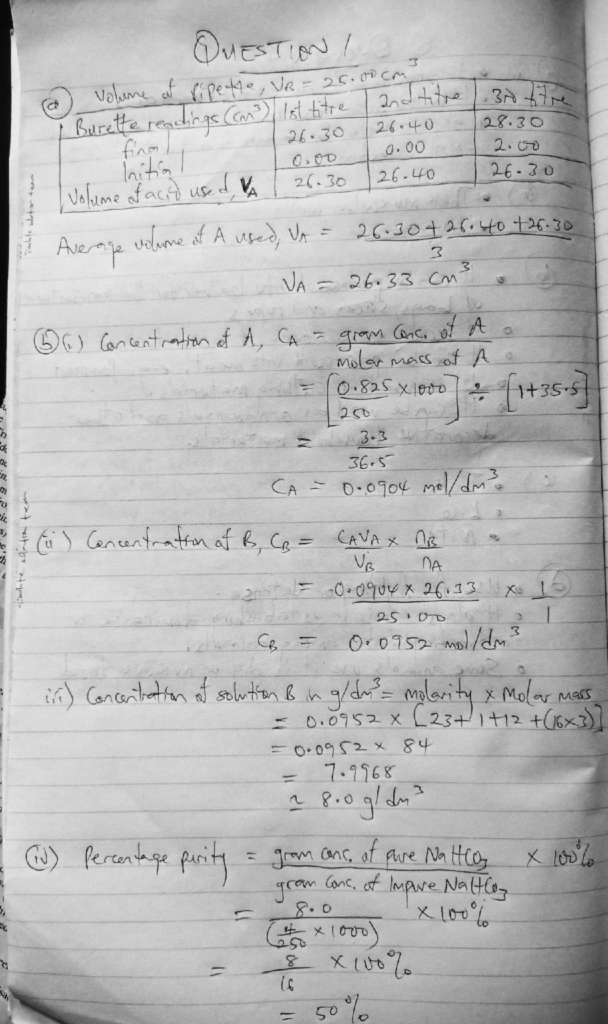 QUESTION 1
(a) Volume of pipette, VB = 25.00 cm³
Burette readings (cm³) | 1st titre | 2nd titre | 3rd titre
final | 26.30 | 26.40 | 28.30
Initial | 0.00 | 0.00 | 2.00
Volume of acid used, VA | 26.30 | 26.40 | 26.30
Average volume of A used, VA = 26.30 + 26.40 + 26.30
3
VA = 26.33 cm³
(b)(i) Concentration of A, CA = gram Conc. of A
molar mass of A
= [0.825 x 1000] ÷ [1+35.5]
250
= 3.3
36.5
CA = 0.0904 mol/dm³
(ii) Concentration of B, CB = CAVA x nB
VB nA
= 0.0904 x 26.33 x 1
25.00 1
CB = 0.0952 mol/dm³
iii) Concentration of solution B in g/dm³ = molarity x Molar mass
= 0.0952 x [23+1+12+(16x3)]
= 0.0952 x 84
= 7.9968
≃ 8.0 g/dm³
(iv) Percentage purity = gram conc. of pure NaHCO3 x 100%
gram Conc. of Impure NaHCO3
= 8.0 x 100%
(4/250 x 1000)
= 8 x 100%
16
= 50%